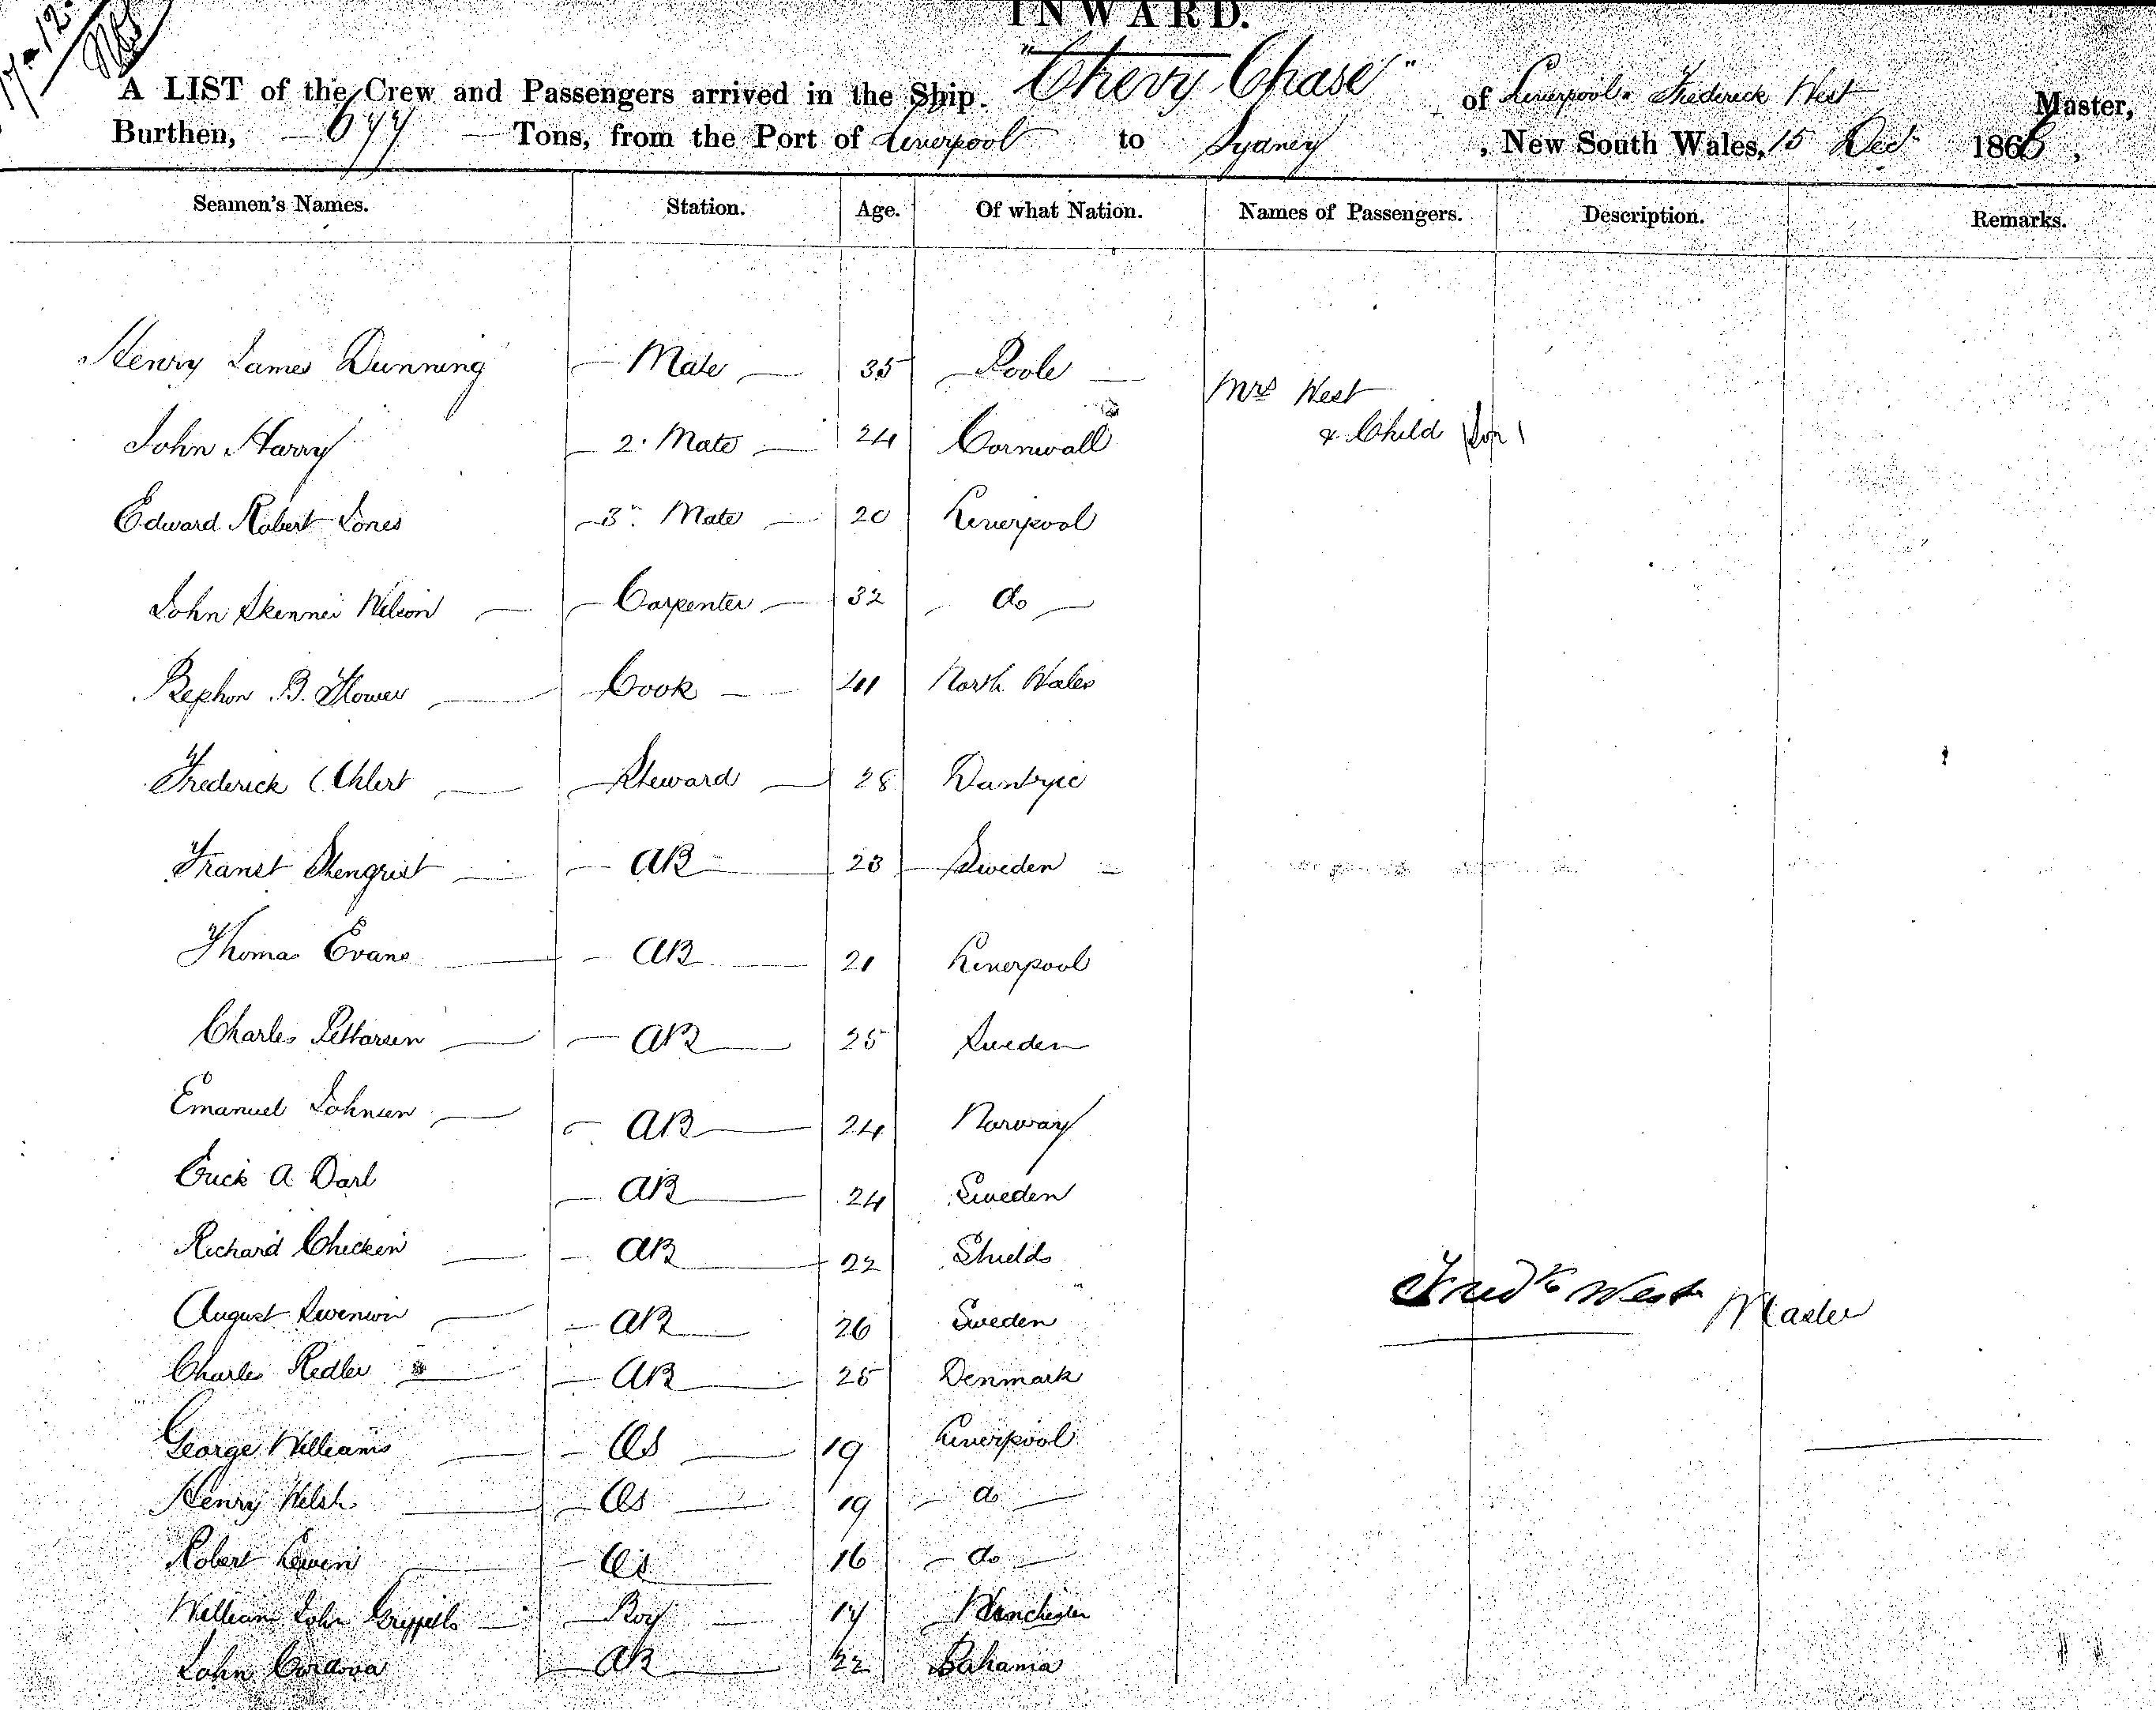 17-12-
INWARD.
A LIST of the Crew and Passengers arrived in the Ship "Chevy Chase" of Liverpool. Frederick West Master,
Burthen, 677 Tons, from the Port of Liverpool to Sydney, New South Wales, 15 Dec 1866,
Seamen's Names. Station. Age. Of what Nation. Names of Passengers. Description. Remarks.
Henry James Dunning Mate 35 Poole Mrs West
John Harry 2. Mate 24 Cornwall & Child
Edward Robert Jones 3r. Mate 20 Liverpool
John Skenner Wilson Carpenter 32 do
B. Cook North Wales
Frederick Ehlert Steward 28 Dantzic
Stenqrist AB 23 Sweden
Thomas Evans AB 21 Liverpool
Charles Pettersen AB 25 Sweden
Emanuel Johnsen AB 24 Norway
Erick A. Darl AB 24 Sweden
Richard Chicken AB 22 Shields
August Swenson AB 26 Sweden
Fredk West Master
Charles Redler AB 25 Denmark
George Williams OS 19 Liverpool
Henry Welsh OS 19 do
Robert Lewin OS 16 do
William John Boy 17 Manchester
John Cordova AB 22 Bahama